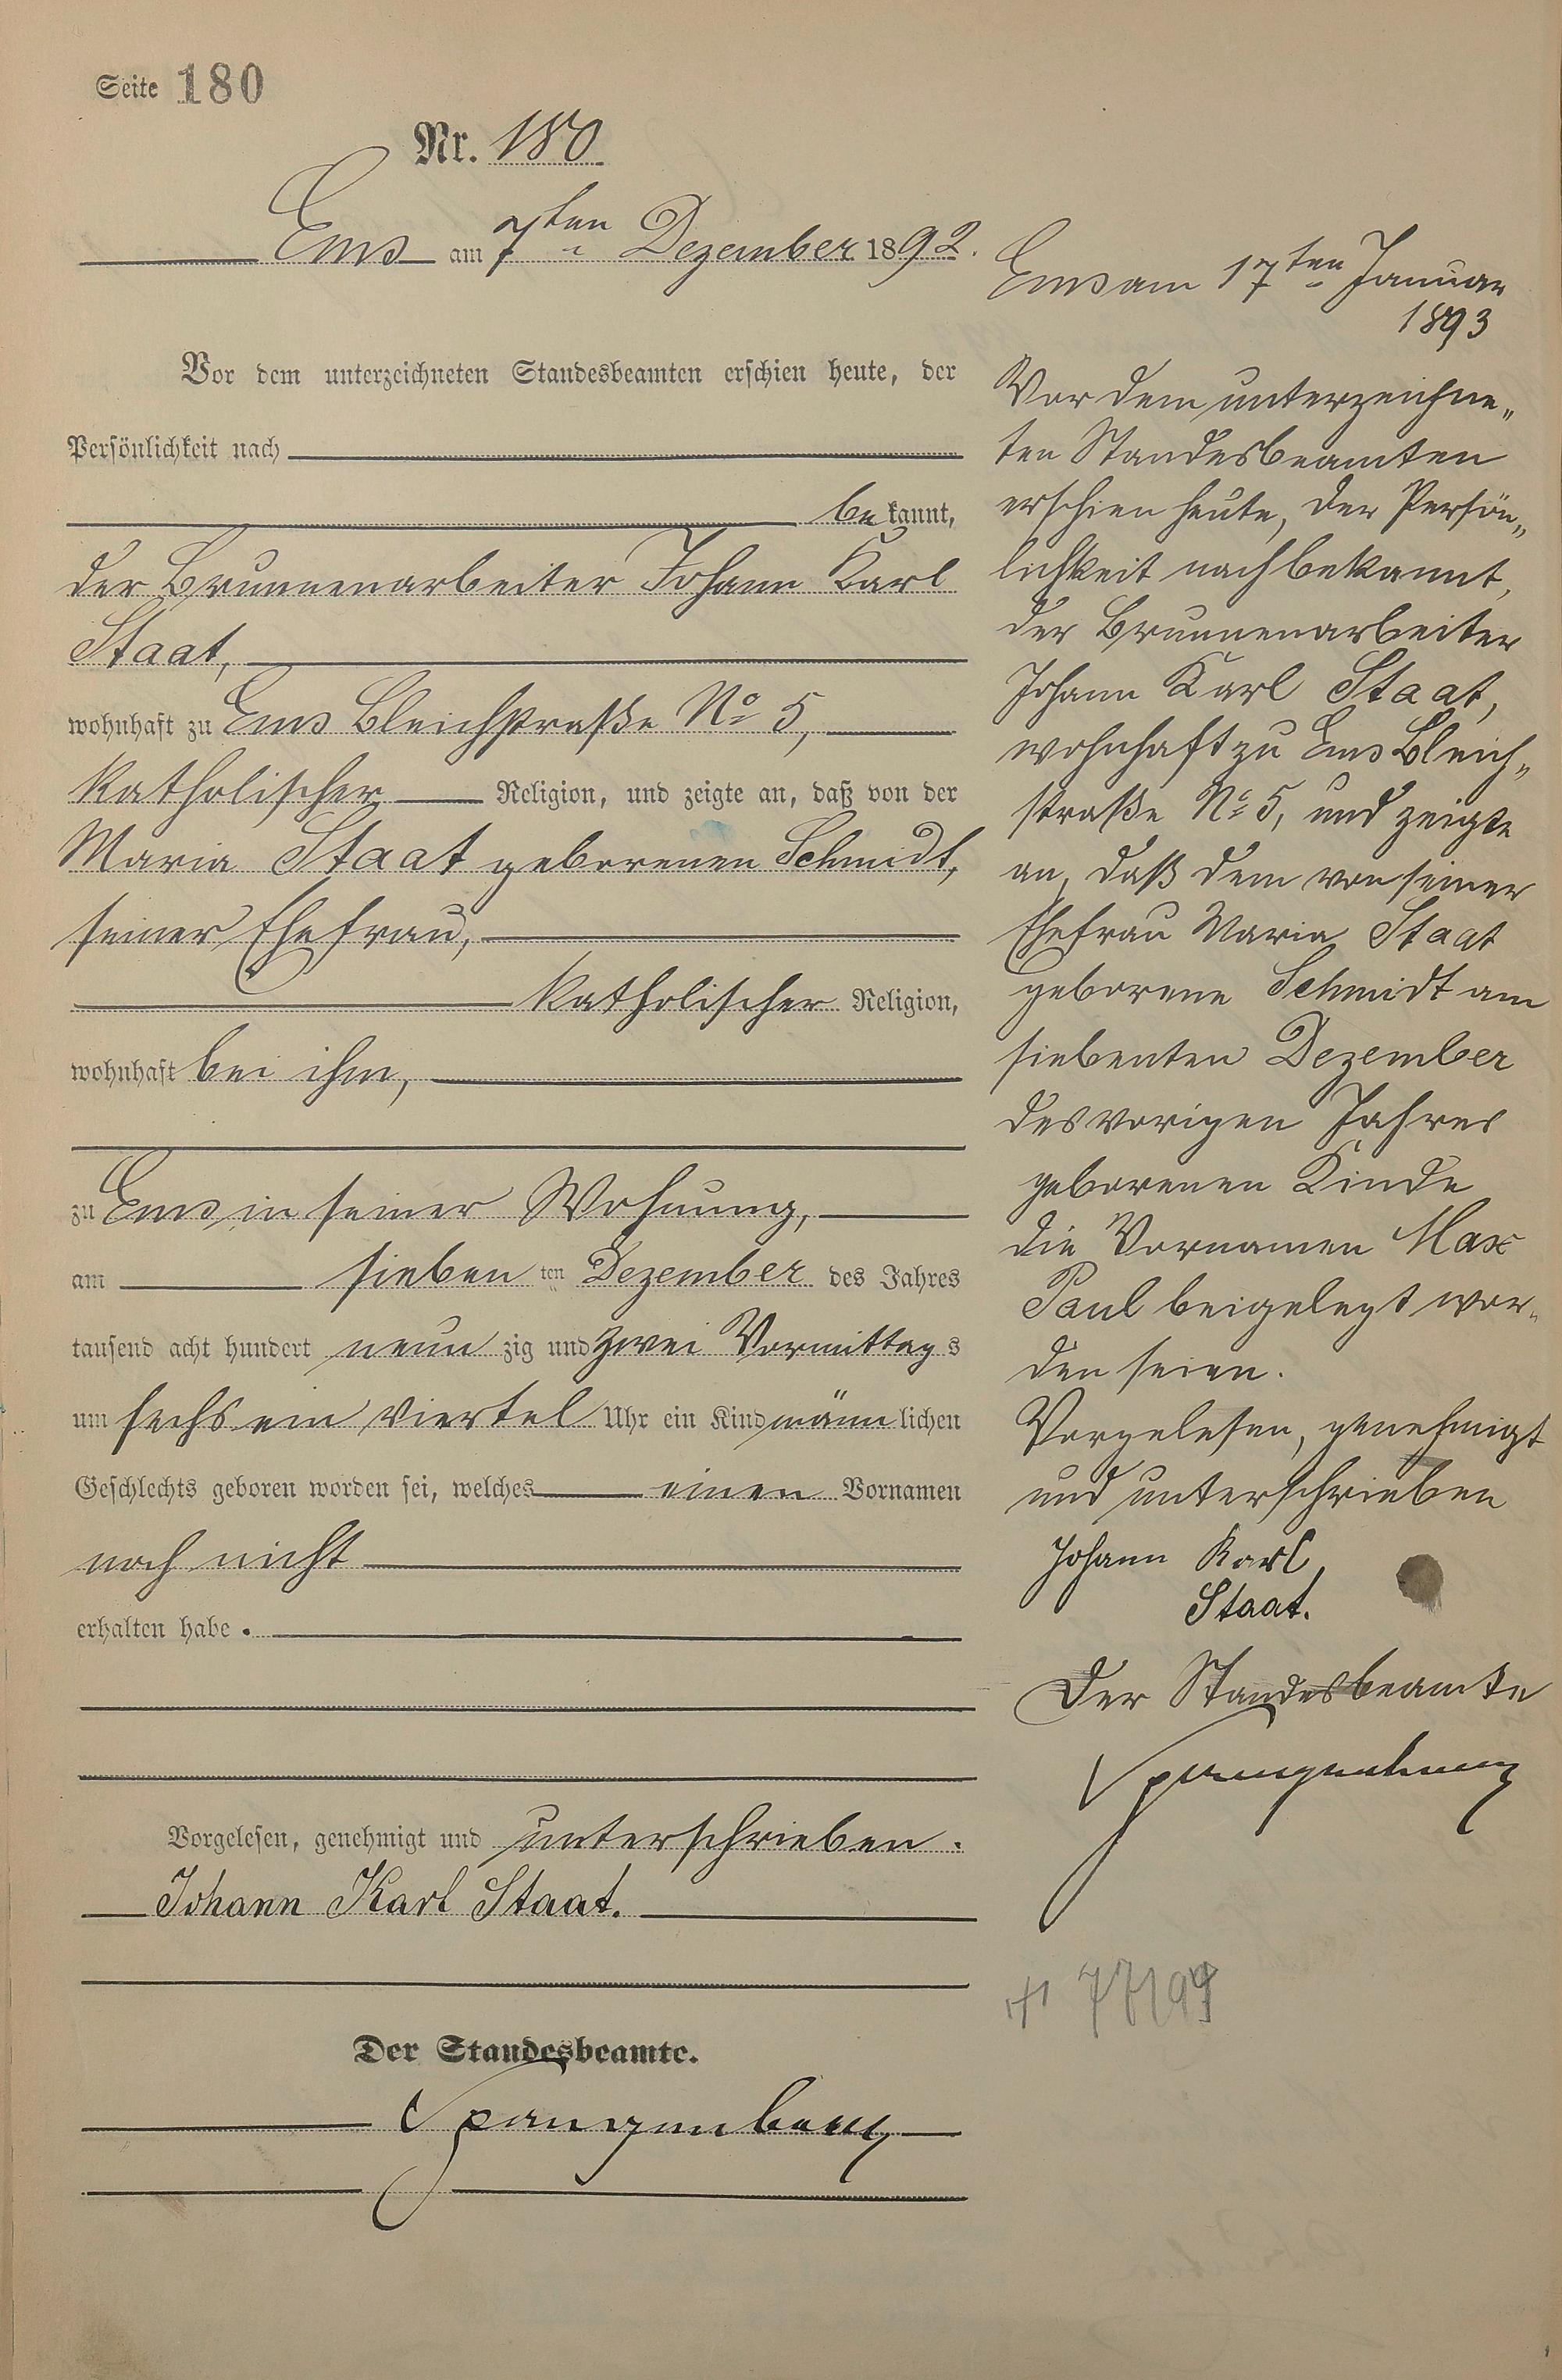 Seite 180
Nr. 180.
Ems am 7ten Dezember 1892.
Vor dem unterzeichneten Standesbeamten erschien heute, der
Persönlichkeit nach
bekannt,
der Brunnenarbeiter Johann Karl
Staat,
wohnhaft zu Ems Bleichstraße No 5,
katholischer Religion, und zeigte an, daß von der
Maria Staat geborenen Schmidt,
seiner Ehefrau,
katholischer Religion,
wohnhaft bei ihm,
zu Ems in seiner Wohnung,
am siebenten Dezember des Jahres
tausend acht hundert neunzig und zwei Vormittags
um sechs ein viertel Uhr ein Kind männlichen
Geschlechts geboren worden sei, welches einen Vornamen
noch nicht
erhalten habe.
Vorgelesen, genehmigt und unterschrieben.
Johann Karl Staat.
Der Standesbeamte.
Spangenberg
Ems am 17ten Januar
1893
Vor dem unterzeichne„
ten Standesbeamten
erschien heute, der Persön„
lichkeit nach bekannt,
der Brunnenarbeiter
Johann Karl Staat,
wohnhaft zu Ems Bleich„
straße No 5, und zeigte
an, daß dem von seiner
Ehefrau Maria Staat
geborene Schmidt am
siebenten Dezember
des vorigen Jahres
geborenen Kinde
die Vornamen Max
Paul beigelegt wor„
den seien.
Vorgelesen, genehmigt
und unterschrieben
Johann Karl
Staat.
Der Standesbeamte
Spangenberg